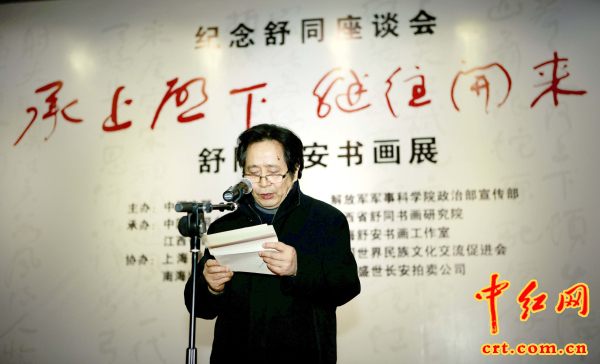 纪念舒同座谈会
承上启下 继往开来
舒同 安书画展
主办：中 解放军军事科学院政治部宣传部
承办：中 西省舒同书画研究院
江西 海舒安书画工作室
协办：上海 世界民族文化交流促进会
南海 盛世长安拍卖公司
中红网
crt.com.cn